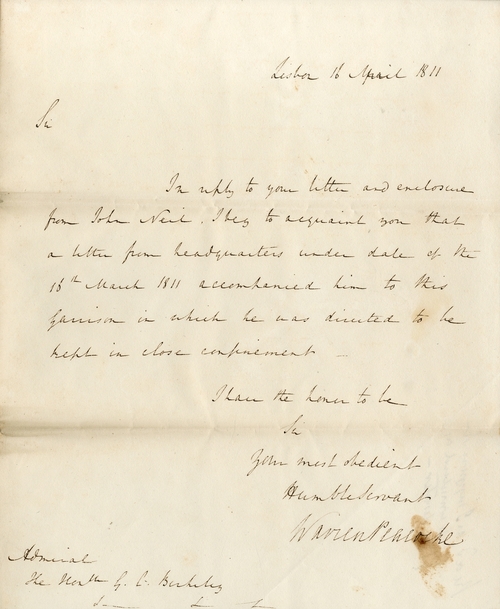 Lisbon 16 April 1811
Sir
In reply to your letter and enclosure
from John Neil. I beg to acquaint you that
a letter from headquarters under date of the
18th March 1811 accompanied him to this
Garrison in which he was directed to be
kept in close confinement –
I have the honor to be
Sir
Your most obedient
Humble Servant
Warren Peacocke
Admiral
The Honble G. C. Berkeley